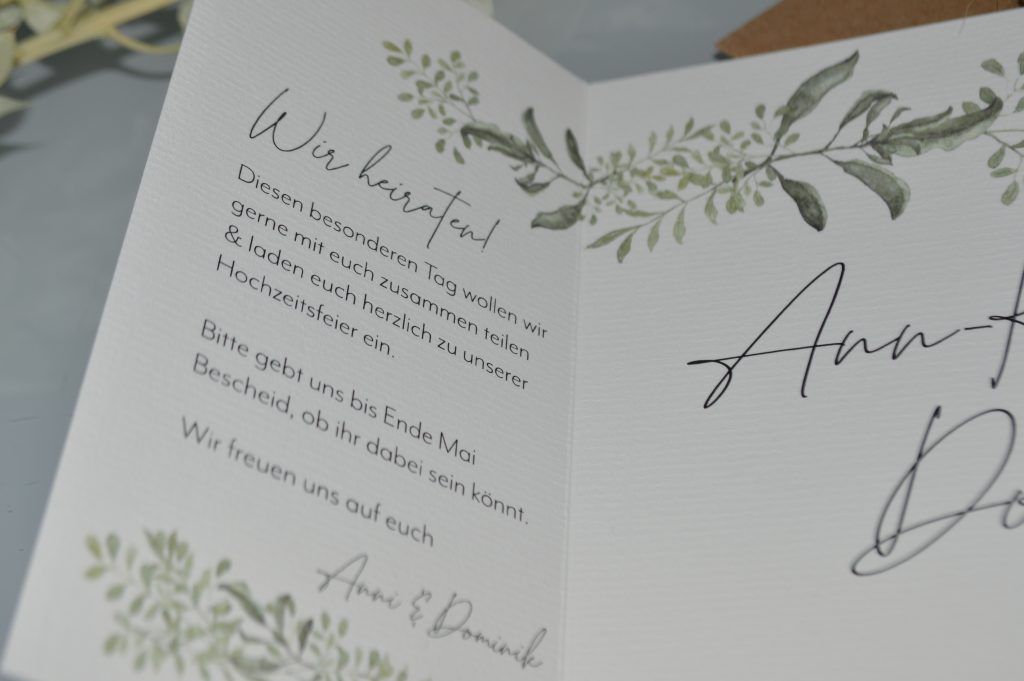 Wir heiraten!
Diesen besonderen Tag wollen wir
gerne mit euch zusammen teilen
& laden euch herzlich zu unserer
Hochzeitsfeier ein.
Bitte gebt uns bis Ende Mai
Bescheid, ob ihr dabei sein könnt.
Wir freuen uns auf euch
Anni & Dominik
Ann-
Do